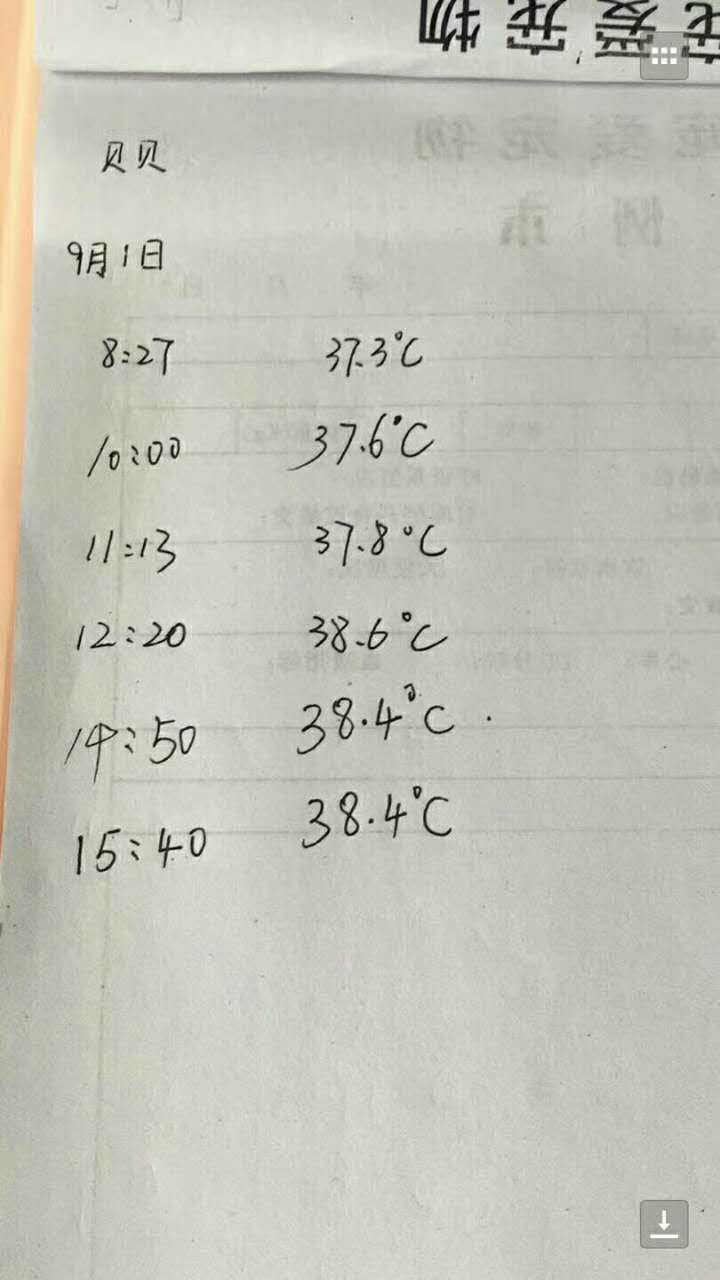 爱宠物
贝贝
9月1日
8:27 37.3℃
10:00 37.6℃
11:13 37.8℃
12:20 38.6℃
14:50 38.4℃.
15:40 38.4℃